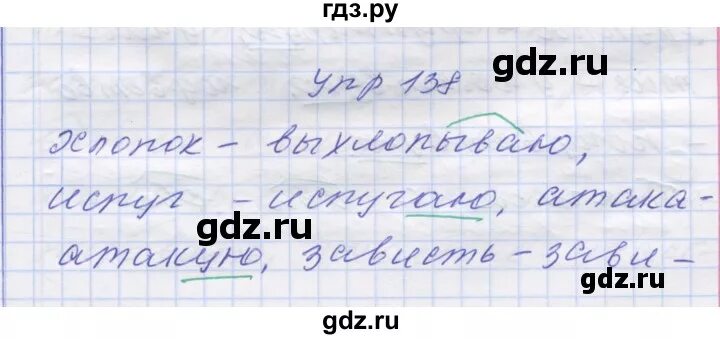 гдз.ру
gdz.ru
упр 138
хлопок - выхлопываю,
испуг - испугаю, атака-
gdz.ru
атакую, зависть - зави -
gdz.ru